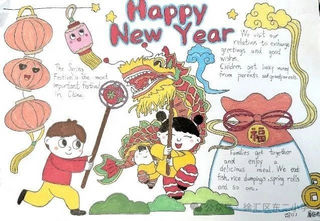 Happy
New Year
The Spring
Festival is the most
important festival
in China.
We visit our
relatives to exchange
greetings and good
wishes.
Children get lucky money
from parents and grandparents.
福
Families get together
and enjoy a
delicious meal. We eat
fish, rice dumplings, spring rolls
and so on.
公众号·徐汇区东二小学